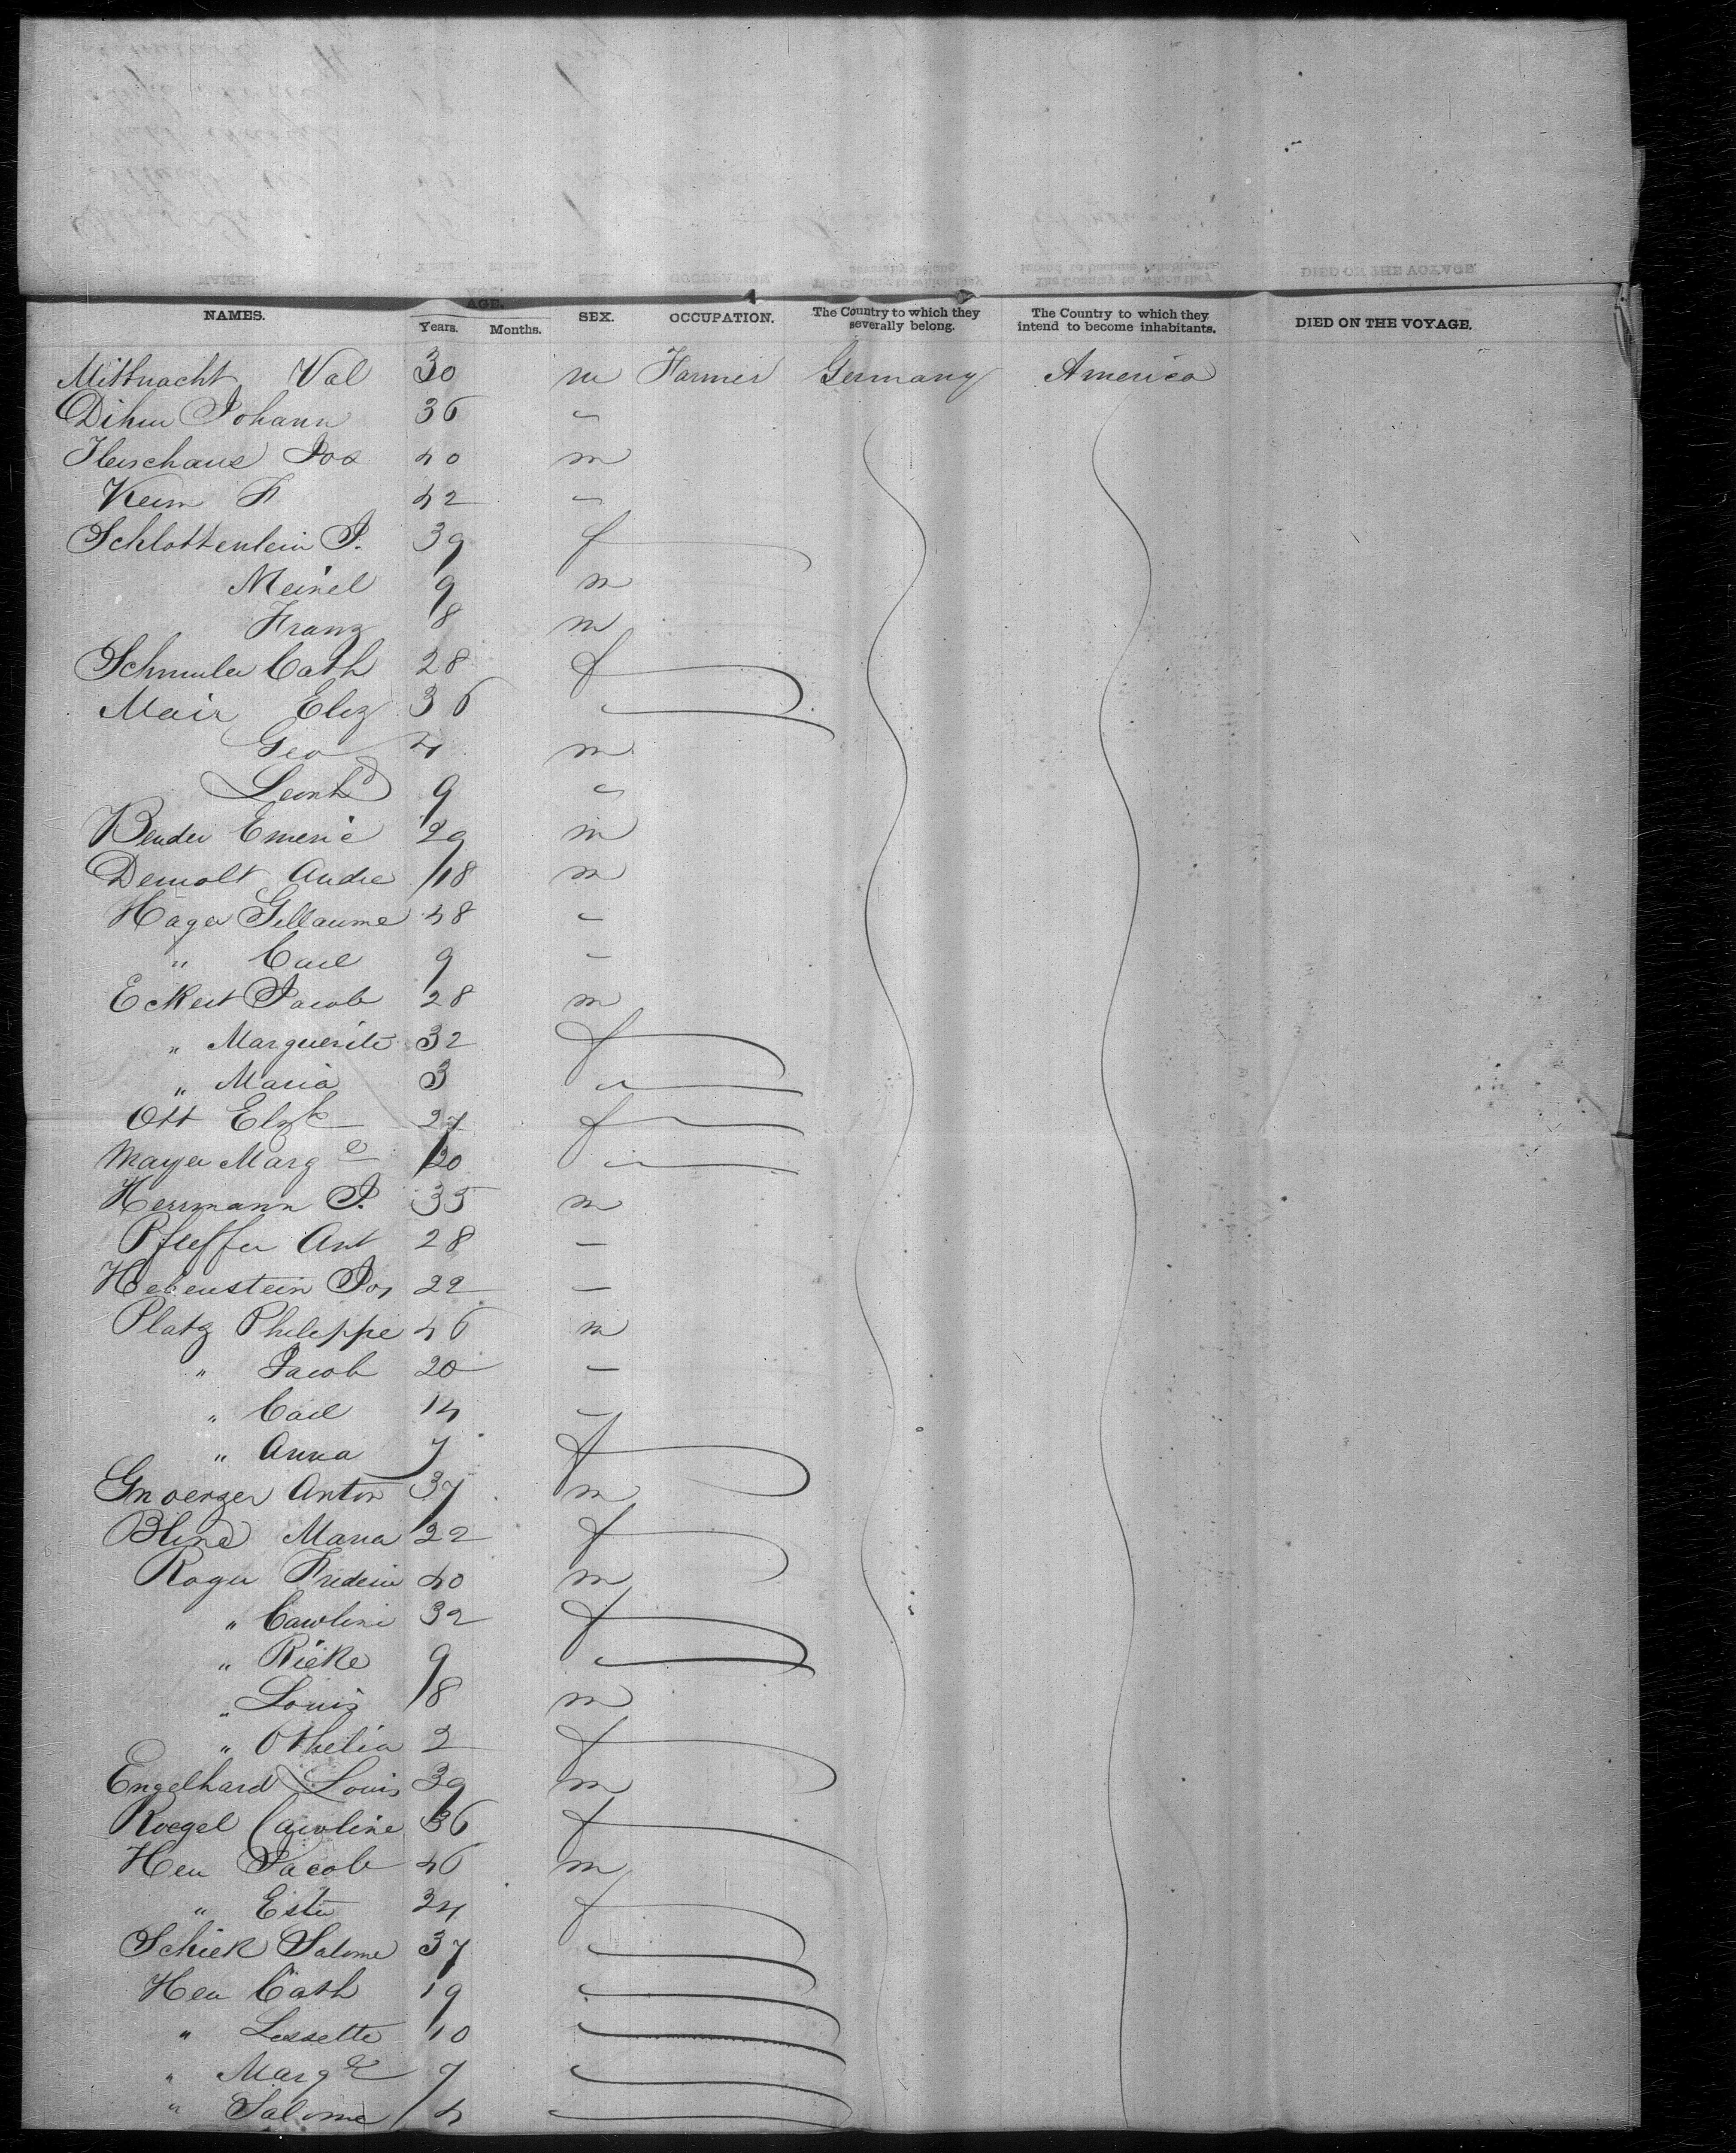 NAMES. AGE. Years. Months. SEX. OCCUPATION. The Country to which they severally belong. The Country to which they intend to become inhabitants. DIED ON THE VOYAGE.
Mittnacht Val 30 m Farmer Germany America
Dihm Johann 36 "
Fleischaus Jos 40 m
Keim F 42 "
Schlottenlein P. 39 f
Meinel 9 m
Franz 8 m
Schmuler Cath 28 f
Mair Eliz 36 "
Geo 4 m
Leonhd 9 "
Bender Emeric 29 m
Demolt Andre 18 m
Hager Gillaume 48 "
" Carl 9 "
Eckert Jacob 28 m
" Marguerite 32 f
" Maria 3 "
Ott Elzh 27 f
Mayer Marge 20 "
Herrmann P. 35 m
Pfeffer Ant 28 "
Hebenstein Jos 22 "
Platz Philippe 46 m
" Jacob 20 "
" Carl 14 "
" Anna 7 f
Gnoerzer Anton 37 m
Blind Maria 22 f
Roger Frideric 40 m
" Caroline 32 f
" Rieke 9 "
" Louis 8 m
" Othelia 2 f
Engelhard Louis 39 m
Roegel Caroline 36 f
Heu Jacob 46 m
" Ester 24 f
Schiek Salome 37 "
Heu Cath 19 "
" Lissette 10 "
" Marge 7 "
" Salome 4 "